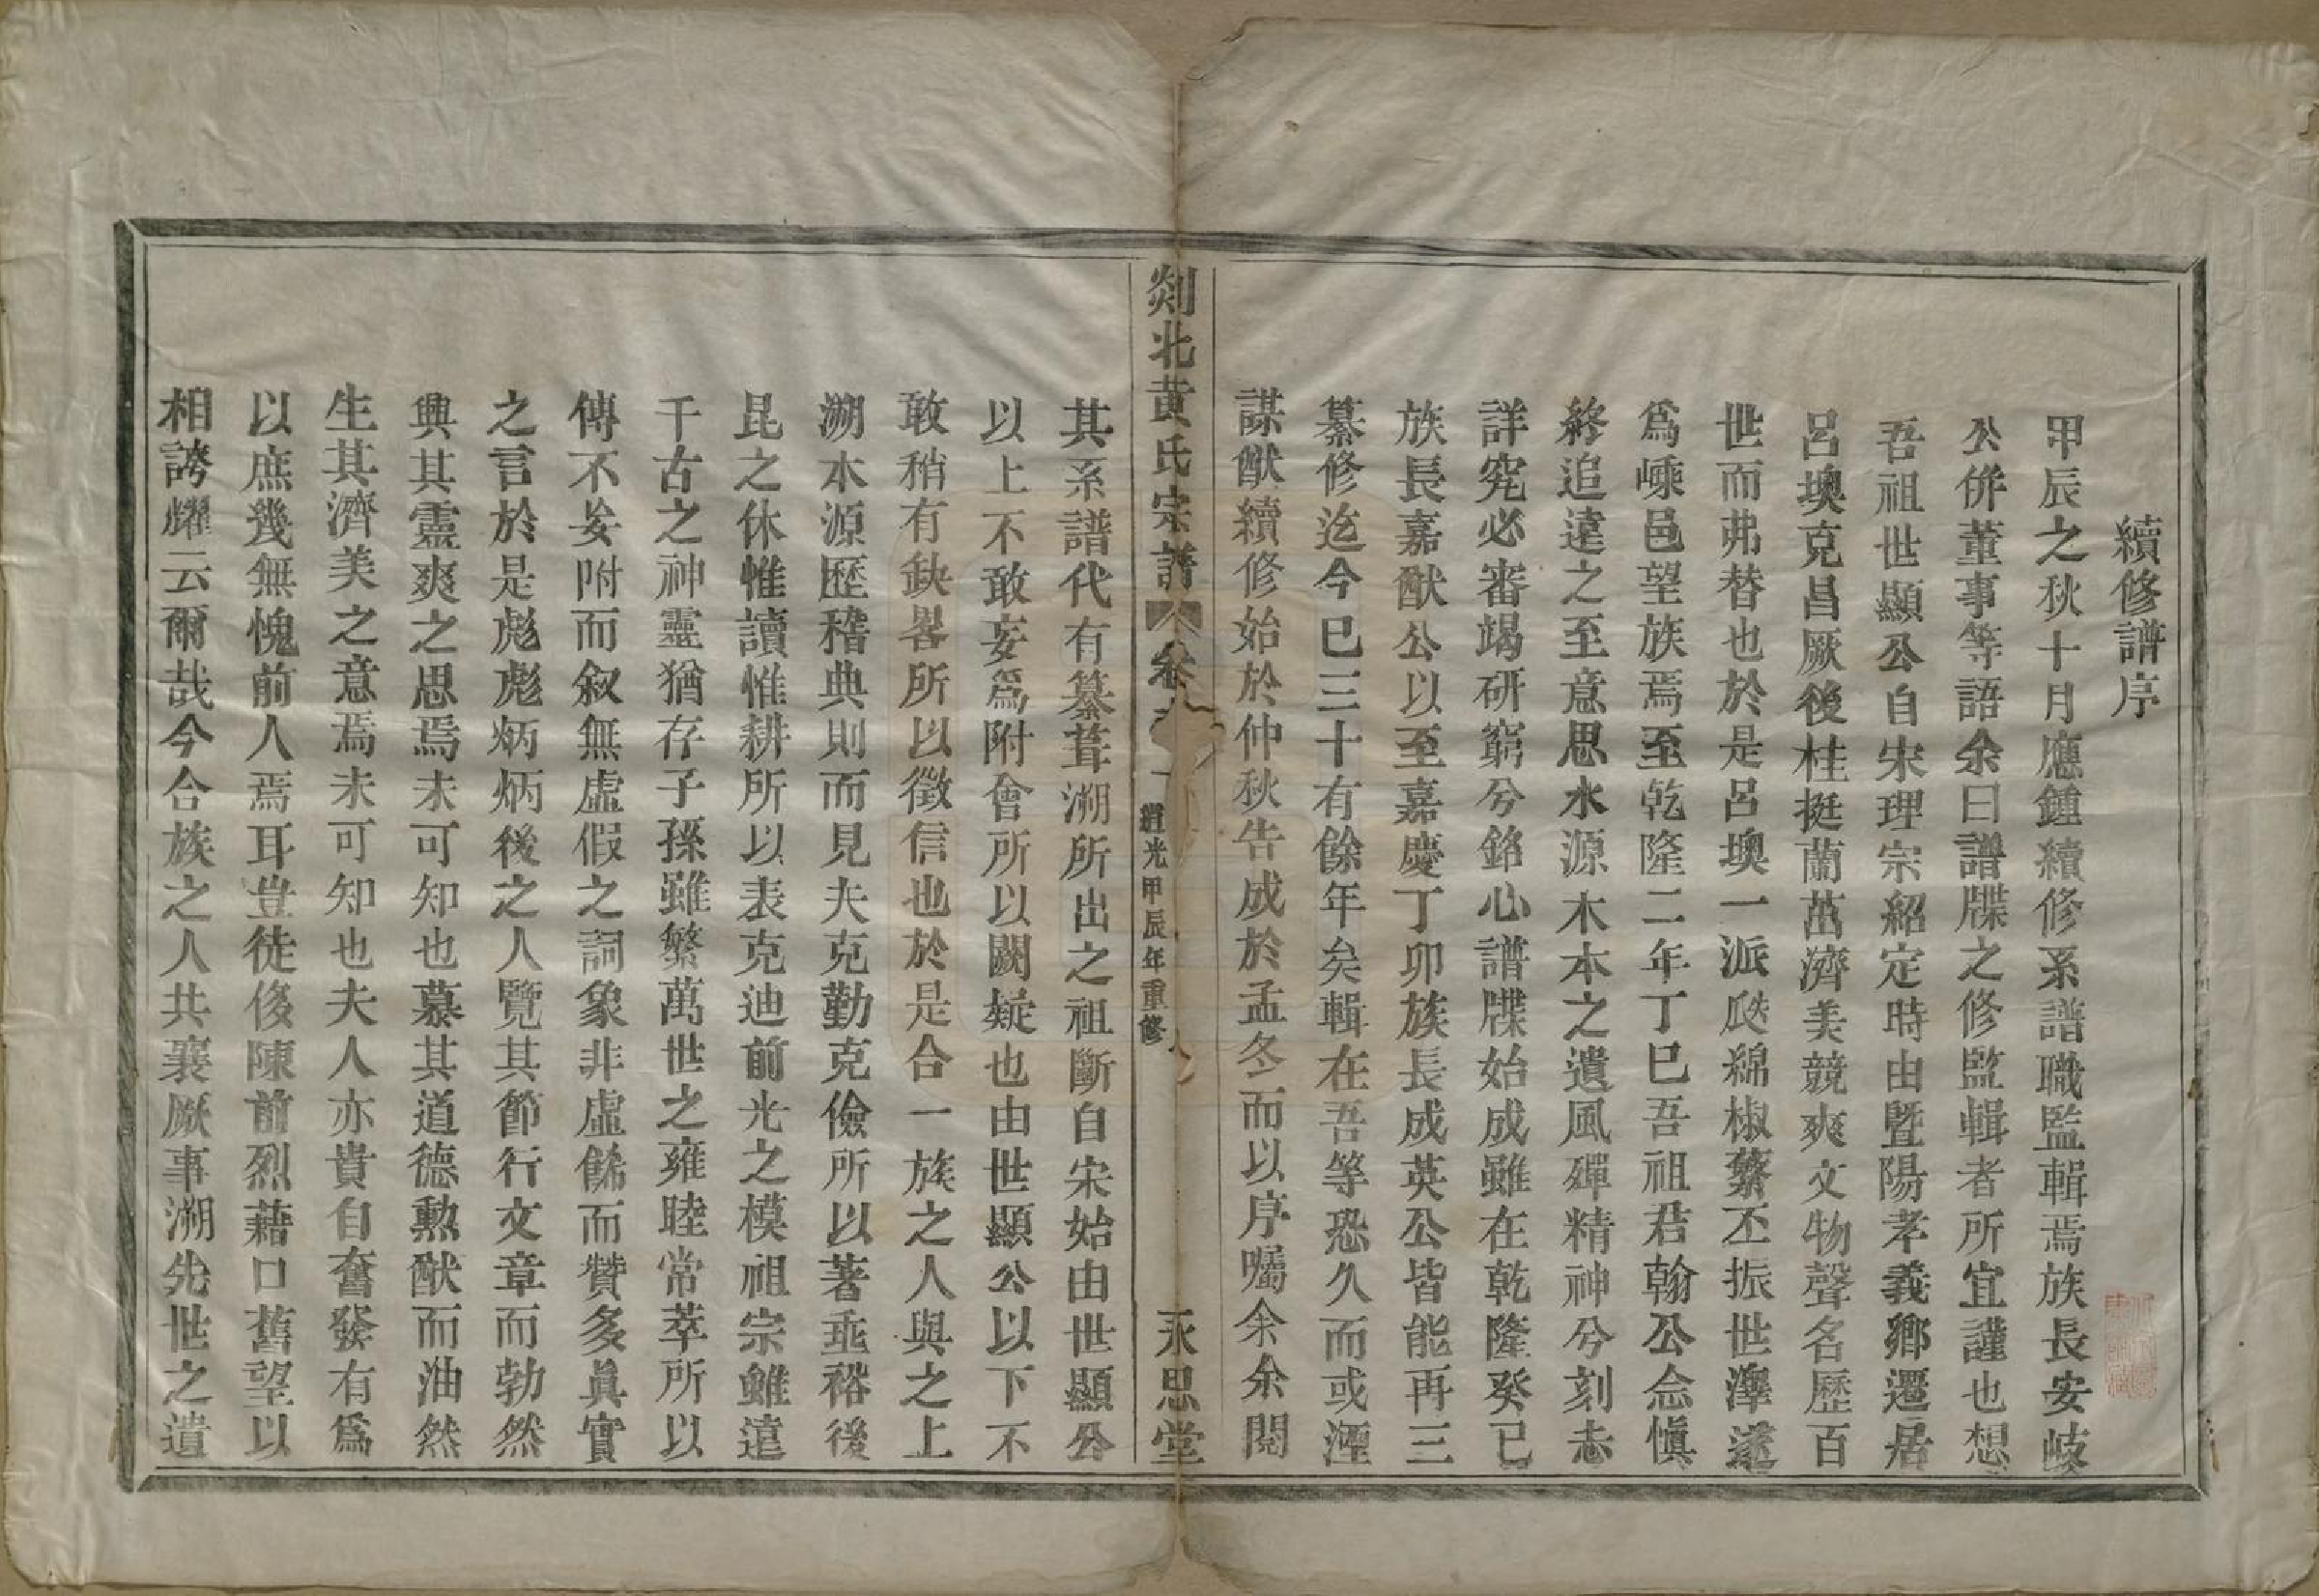 續修譜序
甲辰之秋十月應鍾續修系譜職監輯焉族長安岐
公併董事等語余曰譜牒之修監輯者所宜謹也想
吾祖世顯公自宋理宗紹定時由暨陽孝義鄉遷居
呂墺克昌厥後桂挺蘭茁濟美競爽文物聲名歷百
世而弗替也於是呂墺一派瓞綿椒蕃丕振世澤遂
爲嵊邑望族焉至乾隆二年丁巳吾祖君翰公念愼
終追遠之至意思水源木本之遺風殫精神兮刻志
詳究必審竭研窮兮銘心譜牒始成雖在乾隆癸巳
族長嘉猷公以至嘉慶丁卯族長成英公皆能再三
纂修迄今已三十有餘年矣輯在吾等恐久而或湮
謀猷續修始於仲秋告成於孟冬而以序囑余余閱
剡北黃氏宗譜
卷
道光甲辰年重修
永思堂
其系譜代有纂葺溯所出之祖斷自宋始由世顯公
以上不敢妄爲附會所以闕疑也由世顯公以下不
敢稍有缺畧所以徵信也於是合一族之人與之上
溯本源歷稽典則而見夫克勤克儉所以著垂裕後
昆之休惟讀惟耕所以表克迪前光之模祖宗雖遠
千古之神靈猶存子孫雖繁萬世之雍睦常萃所以
傳不妄附而叙無虛假之詞象非虛餙而贊多眞實
之言於是彪彪炳炳後之人覽其節行文章而勃然
興其靈爽之思焉未可知也慕其道德勲猷而油然
生其濟美之意焉未可知也夫人亦貴自奮發有爲
以庶幾無愧前人焉耳豈徒侈陳前烈藉口舊望以
相誇耀云爾哉今合族之人共襄厥事溯先世之遺